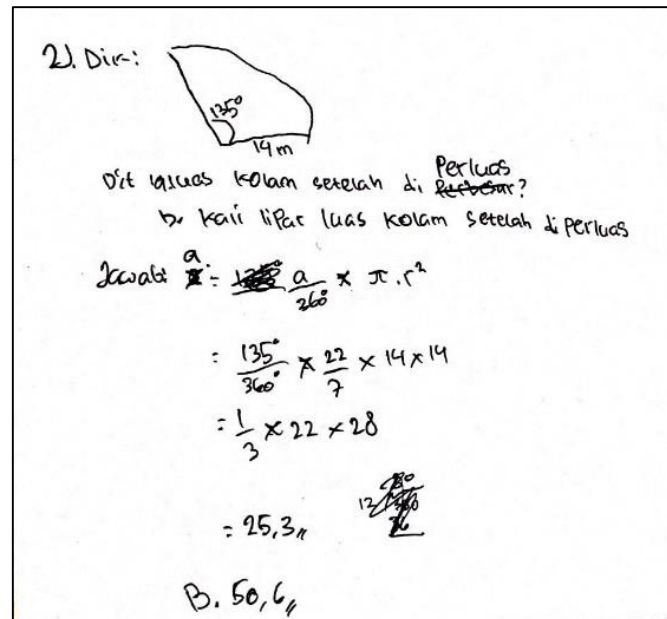 2). Dik:
135°
14 m
Dit a. luas kolam setelah di Perluas?
b. kali lipat luas kolam setelah diperluas
Jawab: a. = a/360° × π.r²
= 135°/360° × 22/7 × 14 × 14
= 1/3 × 22 × 28
= 25,3 //
B. 50,6 //